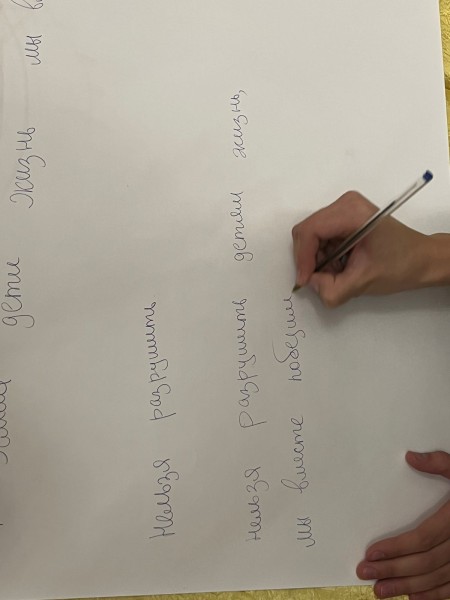 дети жизнь мы
Нельзя разрушить
Нельзя разрушить детям жизнь,
мы вместе победим